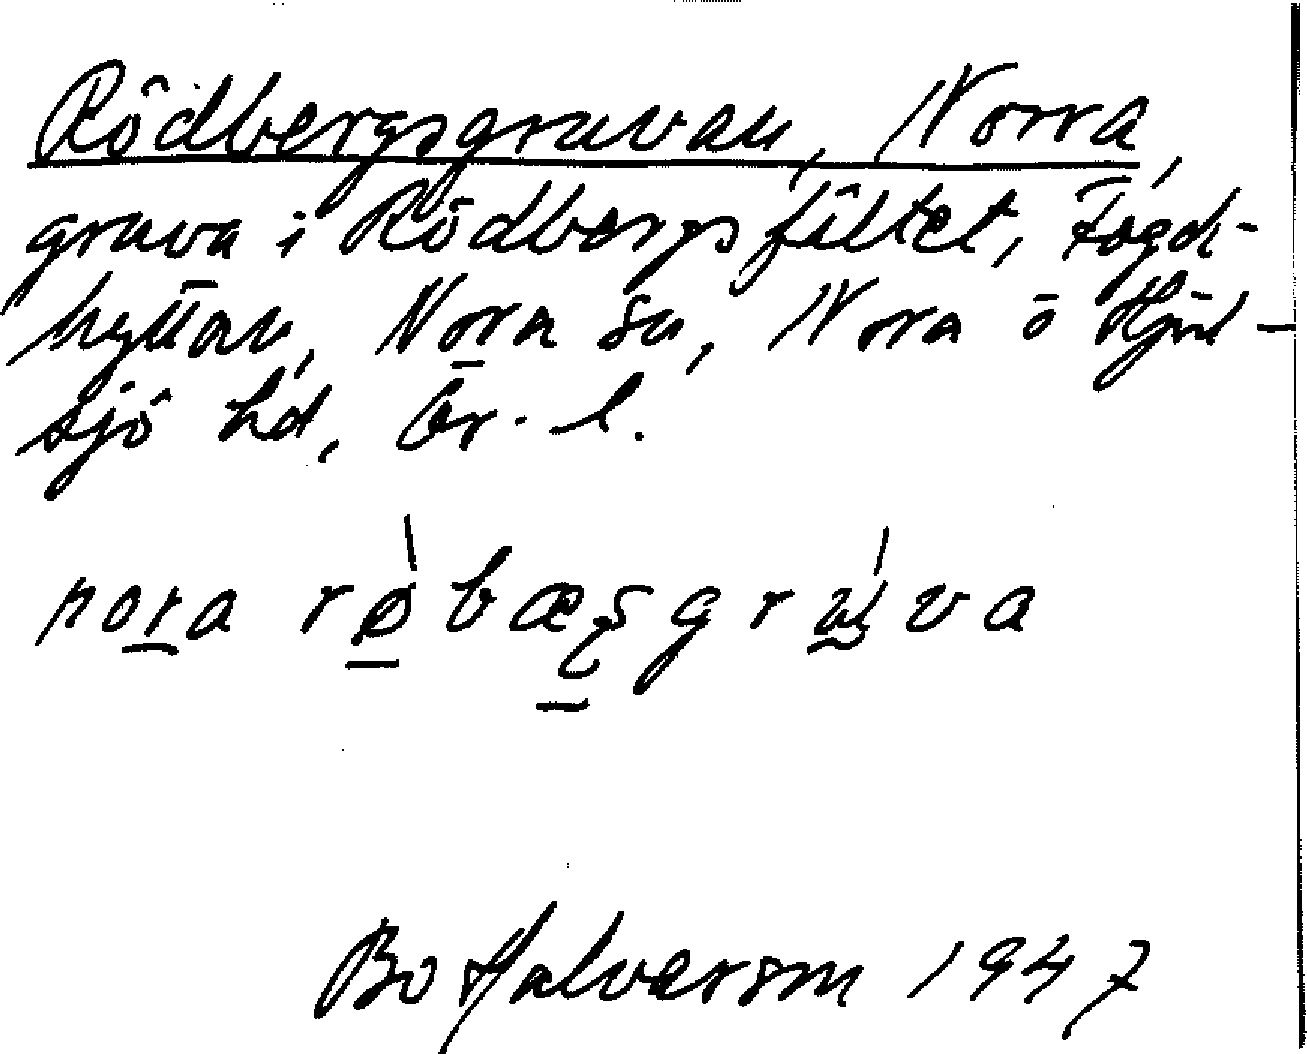 Rödbergsgruvan, Norra,
gruva i Rödbergsfältet, Fogd-
hyttan, Nora sn, Nora o Hjul-
sjö hd, Ör. l.
nora røbæʂgruva
Bo Halvarson 1947